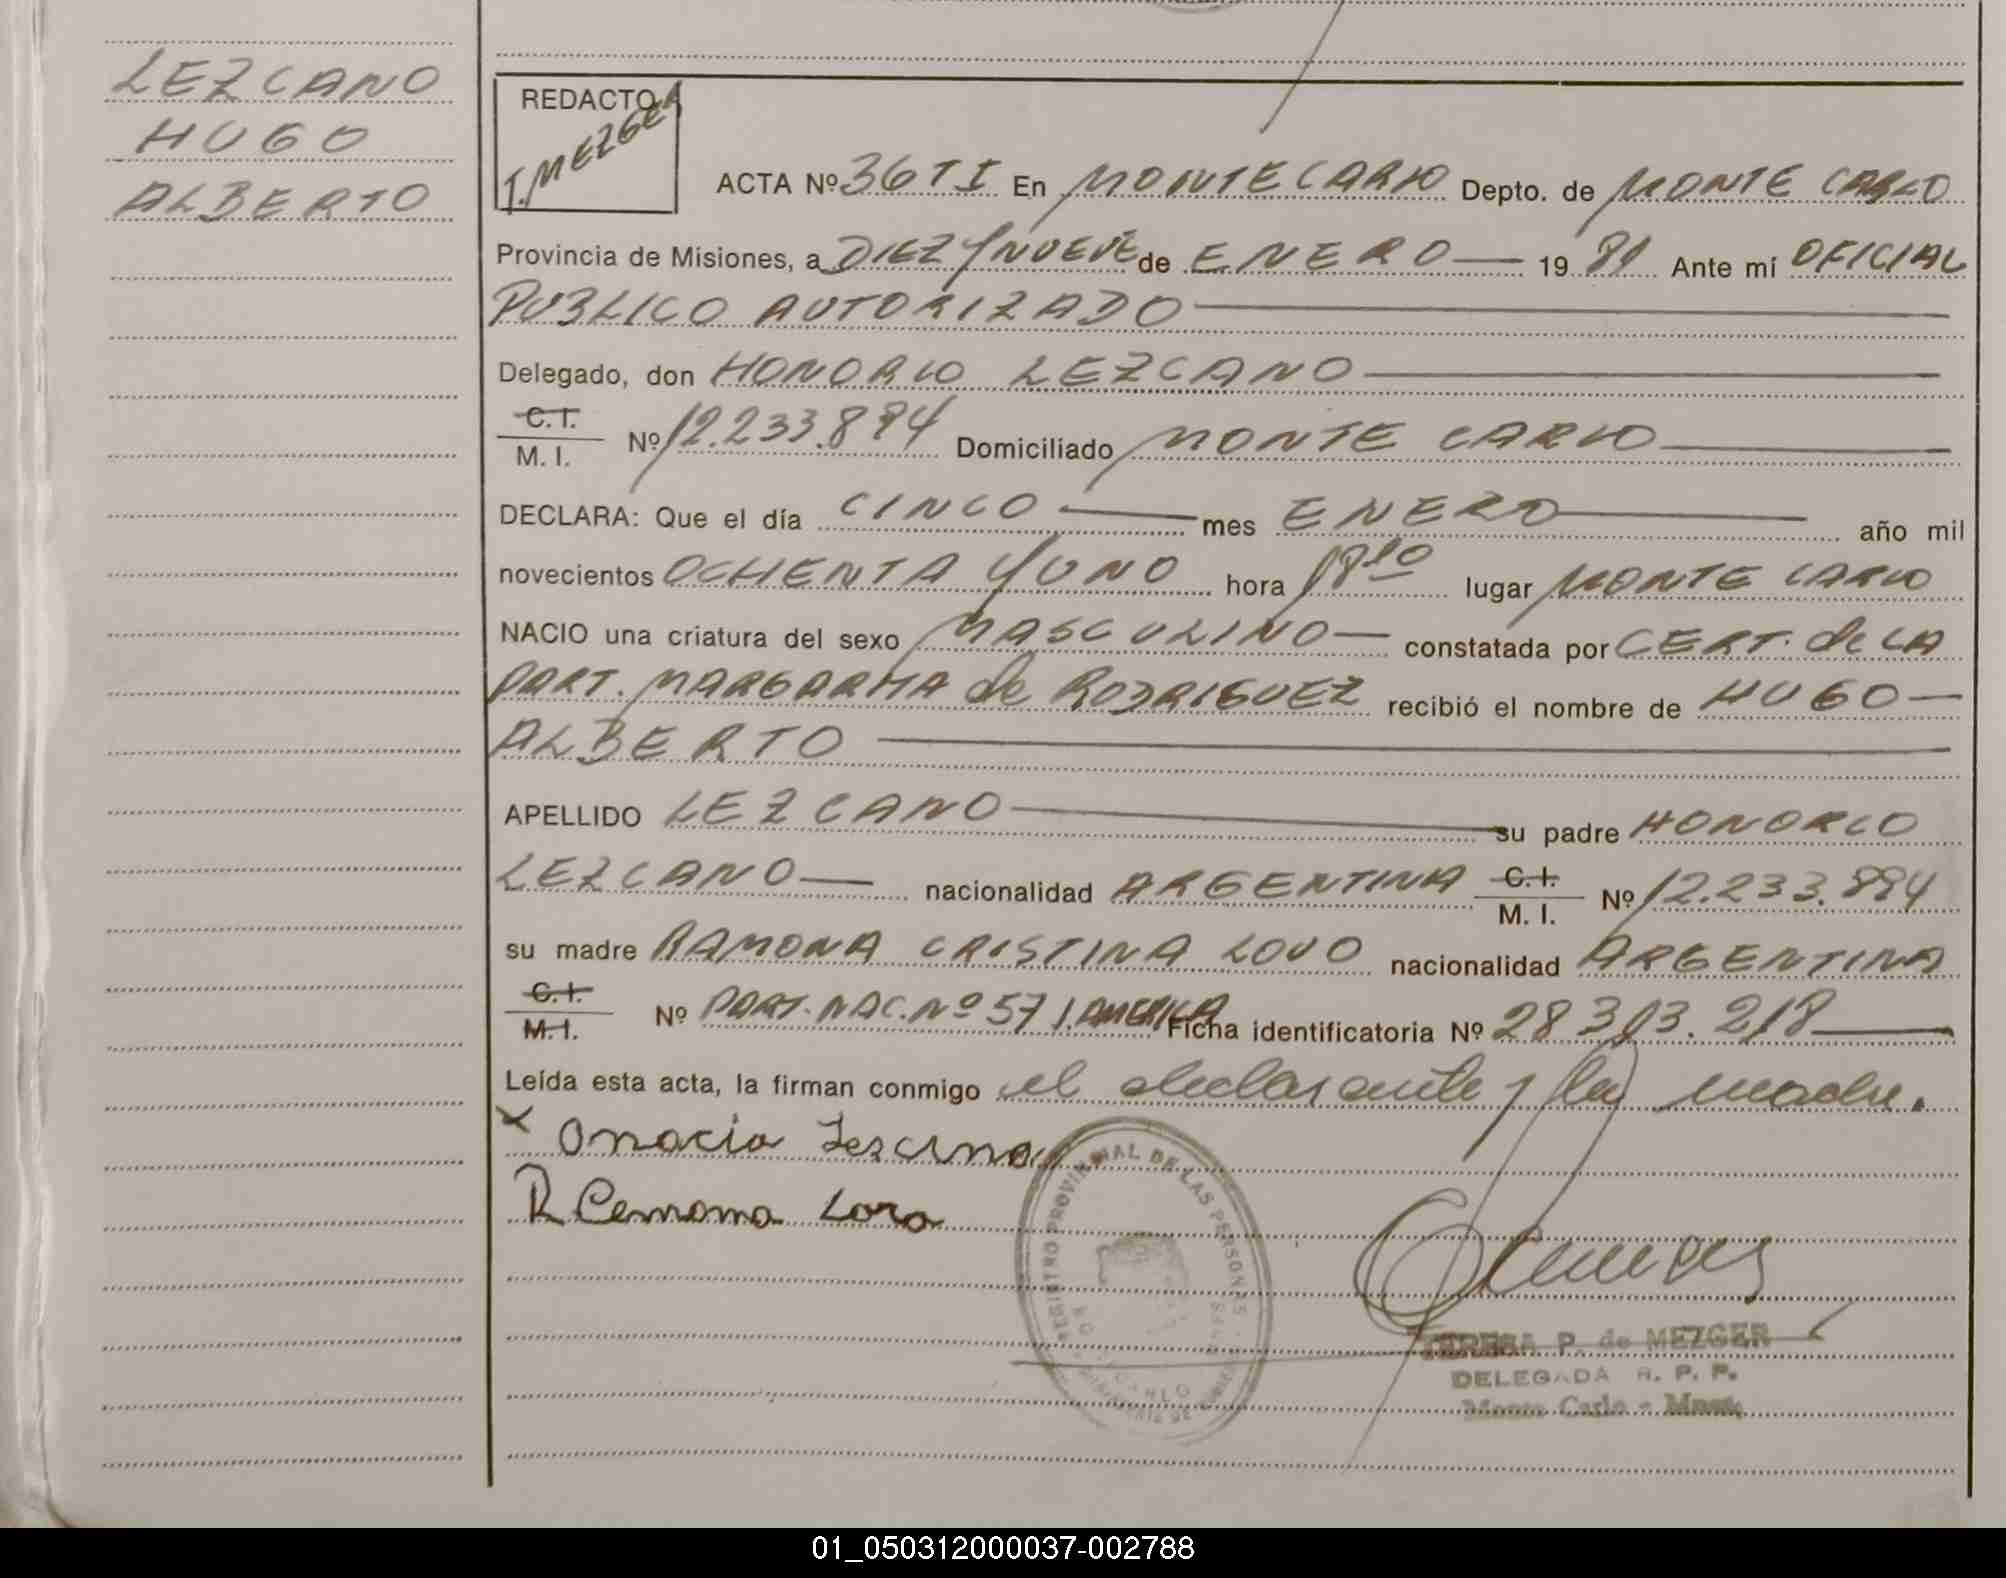 LEZCANO
HUGO
ALBERTO
REDACTO
T. MEZGER
ACTA Nº 36 TI En MONTECARLO Depto. de MONTE CARLO
Provincia de Misiones, a DIEZ Y NUEVE de ENERO 19 81 Ante mí OFICIAL
PUBLICO AUTORIZADO
Delegado, don HONORIO LEZCANO
C.I.
M. I. Nº 12.233.894 Domiciliado MONTE CARLO
DECLARA: Que el día CINCO mes ENERO año mil
novecientos OCHENTA Y UNO hora 18 10 lugar MONTE CARLO
NACIO una criatura del sexo MASCULINO constatada por CERT. de LA
PART. MARGARITA de RODRIGUEZ recibió el nombre de HUGO
ALBERTO
APELLIDO LEZCANO su padre HONORIO
LEZCANO nacionalidad ARGENTINA C.I. M. I. Nº 12.233.894
su madre RAMONA CRISTINA LOVO nacionalidad ARGENTINA
C.I.
M.I. Nº PART. NAC. Nº 57 J. AMERICA Ficha identificatoria Nº 28 313.218
Leída esta acta, la firman conmigo el declarante y la madre.
x Onocio Lescano
R Cemoma Lovo
REGISTRO PROVINCIAL DE LAS PERSONAS
TERESA P. de MEZGER
DELEGADA R. P. P.
Monte Carlo - Mnes.
01_050312000037-002788